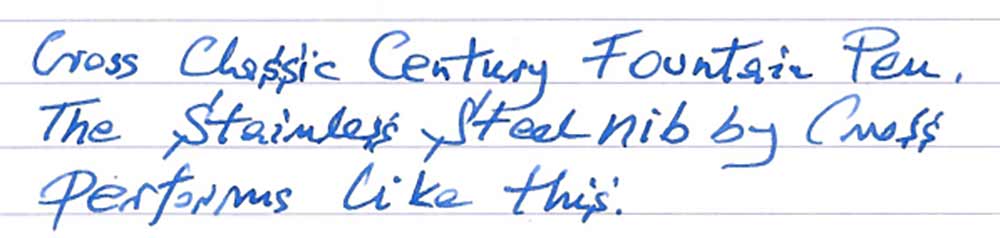 Cross Classic Century Fountain Pen.
The Stainless Steel nib by Cross
Performs like this.